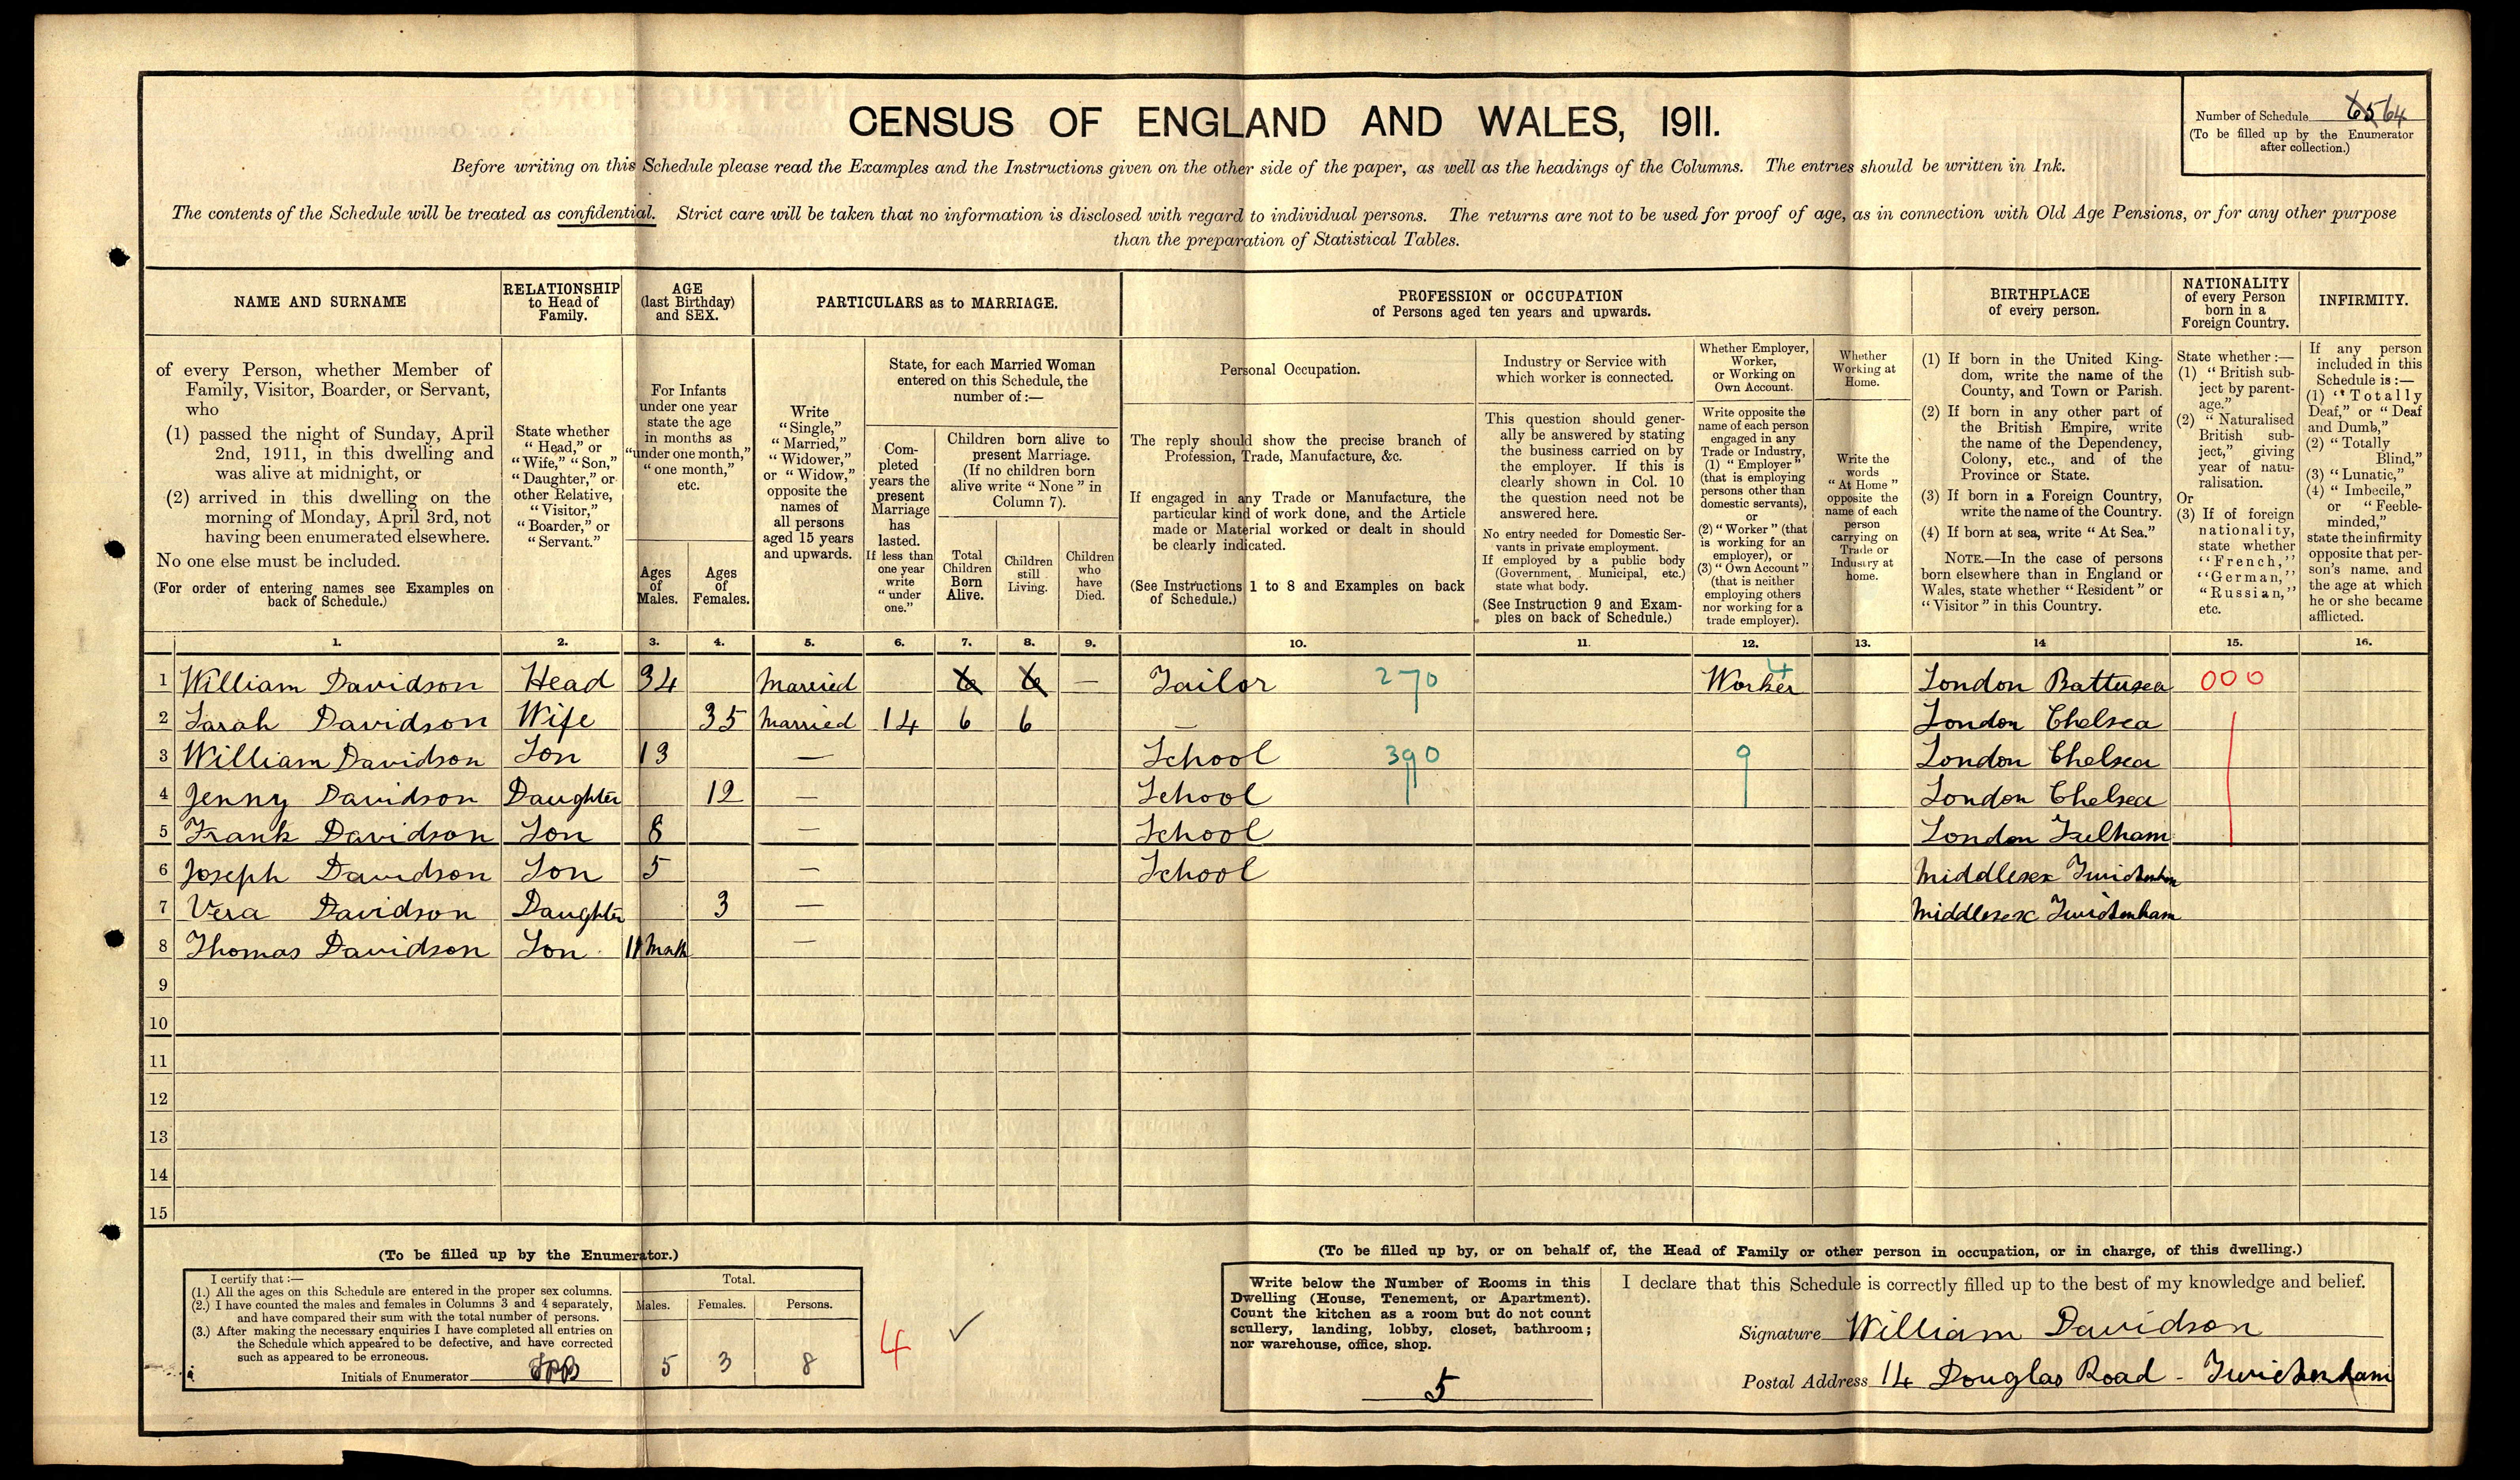 CENSUS OF ENGLAND AND WALES, 1911.
Number of Schedule 65 64
(To be filled up by the Enumerator
after collection.)
Before writing on this Schedule please read the Examples and the Instructions given on the other side of the paper, as well as the headings of the Columns. The entries should be written in Ink.
The contents of the Schedule will be treated as confidential. Strict care will be taken that no information is disclosed with regard to individual persons. The returns are not to be used for proof of age, as in connection with Old Age Pensions, or for any other purpose
than the preparation of Statistical Tables.
NAME AND SURNAME
of every Person, whether Member of
Family, Visitor, Boarder, or Servant,
who
(1) passed the night of Sunday, April
2nd, 1911, in this dwelling and
was alive at midnight, or
(2) arrived in this dwelling on the
morning of Monday, April 3rd, not
having been enumerated elsewhere.
No one else must be included.
(For order of entering names see Examples on
back of Schedule.)
RELATIONSHIP
to Head of
Family.
State whether
"Head," or
"Wife," "Son,"
"Daughter," or
other Relative,
"Visitor,"
"Boarder," or
"Servant."
AGE
(last Birthday)
and SEX.
For Infants
under one year
state the age
in months as
"under one month,"
"one month,"
etc.
Ages
of
Males.
Ages
of
Females.
PARTICULARS as to MARRIAGE.
Write
"Single,"
"Married,"
"Widower,"
or "Widow,"
opposite the
names of
all persons
aged 15 years
and upwards.
State, for each Married Woman
entered on this Schedule, the
number of:—
Com-
pleted
years the
present
Marriage
has
lasted.
If less than
one year
write
"under
one."
Children born alive to
present Marriage.
(If no children born
alive write "None" in
Column 7).
Total
Children
Born
Alive.
Children
still
Living.
Children
who
have
Died.
PROFESSION or OCCUPATION
of Persons aged ten years and upwards.
Personal Occupation.
The reply should show the precise branch of
Profession, Trade, Manufacture, &c.
If engaged in any Trade or Manufacture, the
particular kind of work done, and the Article
made or Material worked or dealt in should
be clearly indicated.
(See Instructions 1 to 8 and Examples on back
of Schedule.)
Industry or Service with
which worker is connected.
This question should gener-
ally be answered by stating
the business carried on by
the employer. If this is
clearly shown in Col. 10
the question need not be
answered here.
No entry needed for Domestic Ser-
vants in private employment.
If employed by a public body
(Government, Municipal, etc.)
state what body.
(See Instruction 9 and Exam-
ples on back of Schedule.)
Whether Employer,
Worker,
or Working on
Own Account.
Write opposite the
name of each person
engaged in any
Trade or Industry,
(1) "Employer"
(that is employing
persons other than
domestic servants),
or
(2) "Worker" (that
is working for an
employer), or
(3) "Own Account"
(that is neither
employing others
nor working for a
trade employer).
Whether
Working at
Home.
Write the
words
"At Home"
opposite the
name of each
person
carrying on
Trade or
Industry at
home.
BIRTHPLACE
of every person.
(1) If born in the United King-
dom, write the name of the
County, and Town or Parish.
(2) If born in any other part of
the British Empire, write
the name of the Dependency,
Colony, etc., and of the
Province or State.
(3) If born in a Foreign Country,
write the name of the Country.
(4) If born at sea, write "At Sea."
NOTE.—In the case of persons
born elsewhere than in England or
Wales, state whether "Resident" or
"Visitor" in this Country.
NATIONALITY
of every Person
born in a
Foreign Country.
State whether:—
(1) "British sub-
ject by parent-
age."
(2) "Naturalised
British sub-
ject," giving
year of natu-
ralisation.
Or
(3) If of foreign
nationality,
state whether
"French,"
"German,"
"Russian,"
etc.
INFIRMITY.
If any person
included in this
Schedule is:—
(1) "Totally
Deaf," or "Deaf
and Dumb,"
(2) "Totally
Blind,"
(3) "Lunatic,"
(4) "Imbecile,"
or "Feeble-
minded,"
state the infirmity
opposite that per-
son's name, and
the age at which
he or she became
afflicted.
1. 2. 3. 4. 5. 6. 7. 8. 9. 10. 11. 12. 13. 14 15. 16.
1 William Davidson Head 34 Married 6 6 — Tailor 270 Worker 4 London Battersea 000
2 Sarah Davidson Wife 35 Married 14 6 6 — London Chelsea
3 William Davidson Son 13 — School 390 9 London Chelsea
4 Jenny Davidson Daughter 12 — School London Chelsea
5 Frank Davidson Son 8 — School London Fulham
6 Joseph Davidson Son 5 — School Middlesex Twickenham
7 Vera Davidson Daughter 3 — Middlesex Twickenham
8 Thomas Davidson Son 11 Mnth —
9
10
11
12
13
14
15
(To be filled up by the Enumerator.)
I certify that:—
(1.) All the ages on this Schedule are entered in the proper sex columns.
(2.) I have counted the males and females in Columns 3 and 4 separately,
and have compared their sum with the total number of persons.
(3.) After making the necessary enquiries I have completed all entries on
the Schedule which appeared to be defective, and have corrected
such as appeared to be erroneous.
Initials of Enumerator
Total.
Males. Females. Persons.
5 3 8
4
(To be filled up by, or on behalf of, the Head of Family or other person in occupation, or in charge, of this dwelling.)
Write below the Number of Rooms in this
Dwelling (House, Tenement, or Apartment).
Count the kitchen as a room but do not count
scullery, landing, lobby, closet, bathroom;
nor warehouse, office, shop.
5
I declare that this Schedule is correctly filled up to the best of my knowledge and belief.
Signature William Davidson
Postal Address 14 Douglas Road - Twickenham